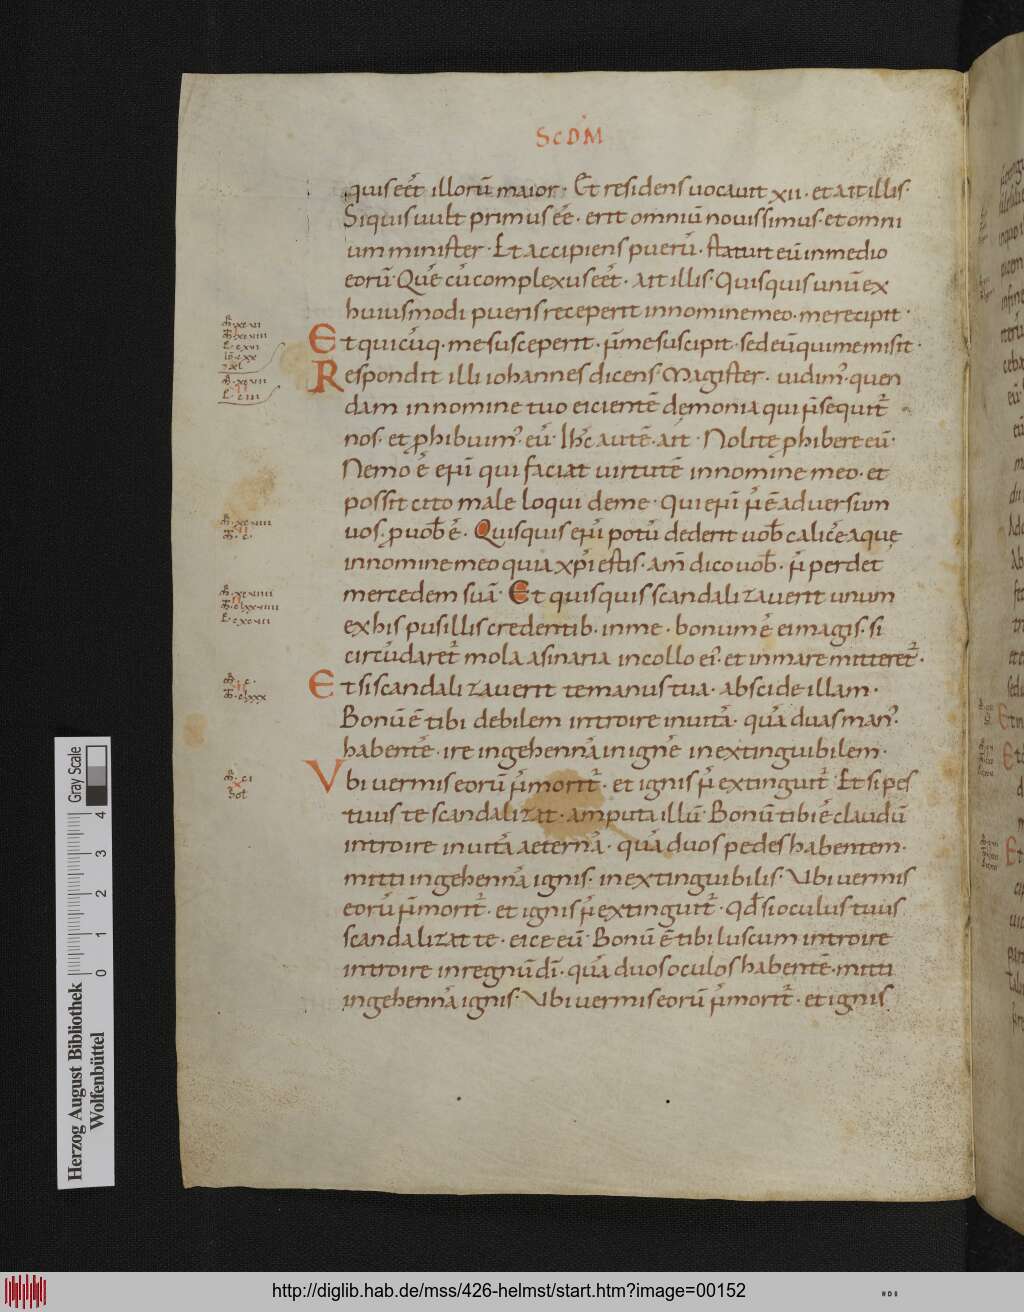 ScDM
quis eēt illorū maior· Et residens uocauit xii· et ait illis·
Siquis uult primus eē· erit omniū nouissimus· et omni
um minister· Et accipiens puerū· statuit eū in medio
eorū· Quē cū complexus eēt· ait illis· Quisquis unū ex
huiusmodi pueris receperit in nomine meo· me recipit·
Et quicūq· me susceperit· n̄ me suscipit· sed eū qui me misit·
Respondit illi iohannes dicens Magister· uidim᾽ quen
dam in nomine tuo eicientē demonia qui n̄ sequit᷑
nos· et phibuim᾽ eū· Ihc̄ autē· ait· Nolite phibere eū·
Nemo ē enī qui faciat uirtutē in nomine meo· et
possit cito male loqui de me· Qui enī n̄ ē aduersum
uos· p uob ē· Quisquis enī potū dederit uob calicē aquę
in nomine meo quia xp̄i estis· am̄ dico uob· n̄ perdet
mercedem suā· Et quisquis scandalizauerit unum
ex his pusillis credentib· in me· bonum ē ei magis· si
circūdaret᷑ mola asinaria in collo ei᾽ et in mare mitteret᷑·
Et si scandalizauerit te manus tua· abscide illam·
Bonū ē tibi debilem introire in uitā· quā duas man᾽
habentē· ire in gehennā in ignē inextinguibilem·
Vbi uermis eorū n̄ morit᷑· et ignis n̄ extinguit᷑ Et si pes
tuus te scandalizat· amputa illū· Bonū tibi ē claudū
introire in uitā aeternā· quā duos pedes habentem·
mitti in gehennā ignis· inextinguibilis· Vbi uermis
eorū n̄ morit᷑· et ignis n̄ extinguit᷑· Qd si oculus tuus
scandalizat te· eice eū· Bonū ē tibi luscum introire
introire in regnū dī· quā duos oculos habentē· mitti
in gehennā ignis· Vbi uermis eorū n̄ morit᷑· et ignis
Gray Scale
4
3
2
1
0
Herzog August Bibliothek
Wolfenbüttel
http://diglib.hab.de/mss/426-helmst/start.htm?image=00152